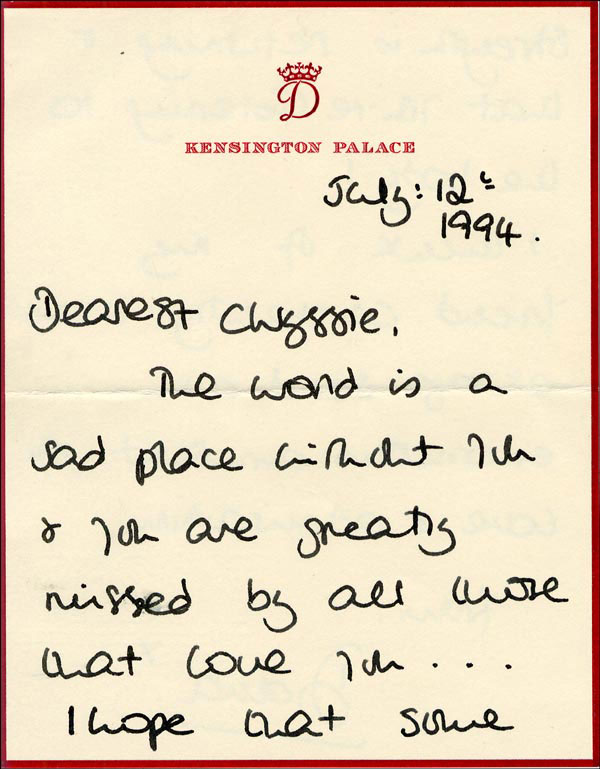 D
KENSINGTON PALACE
July: 12th
1994.
Dearest Chryssie,
The world is a
sad place without you
& you are greatly
missed by all those
that love you . . .
I hope that some